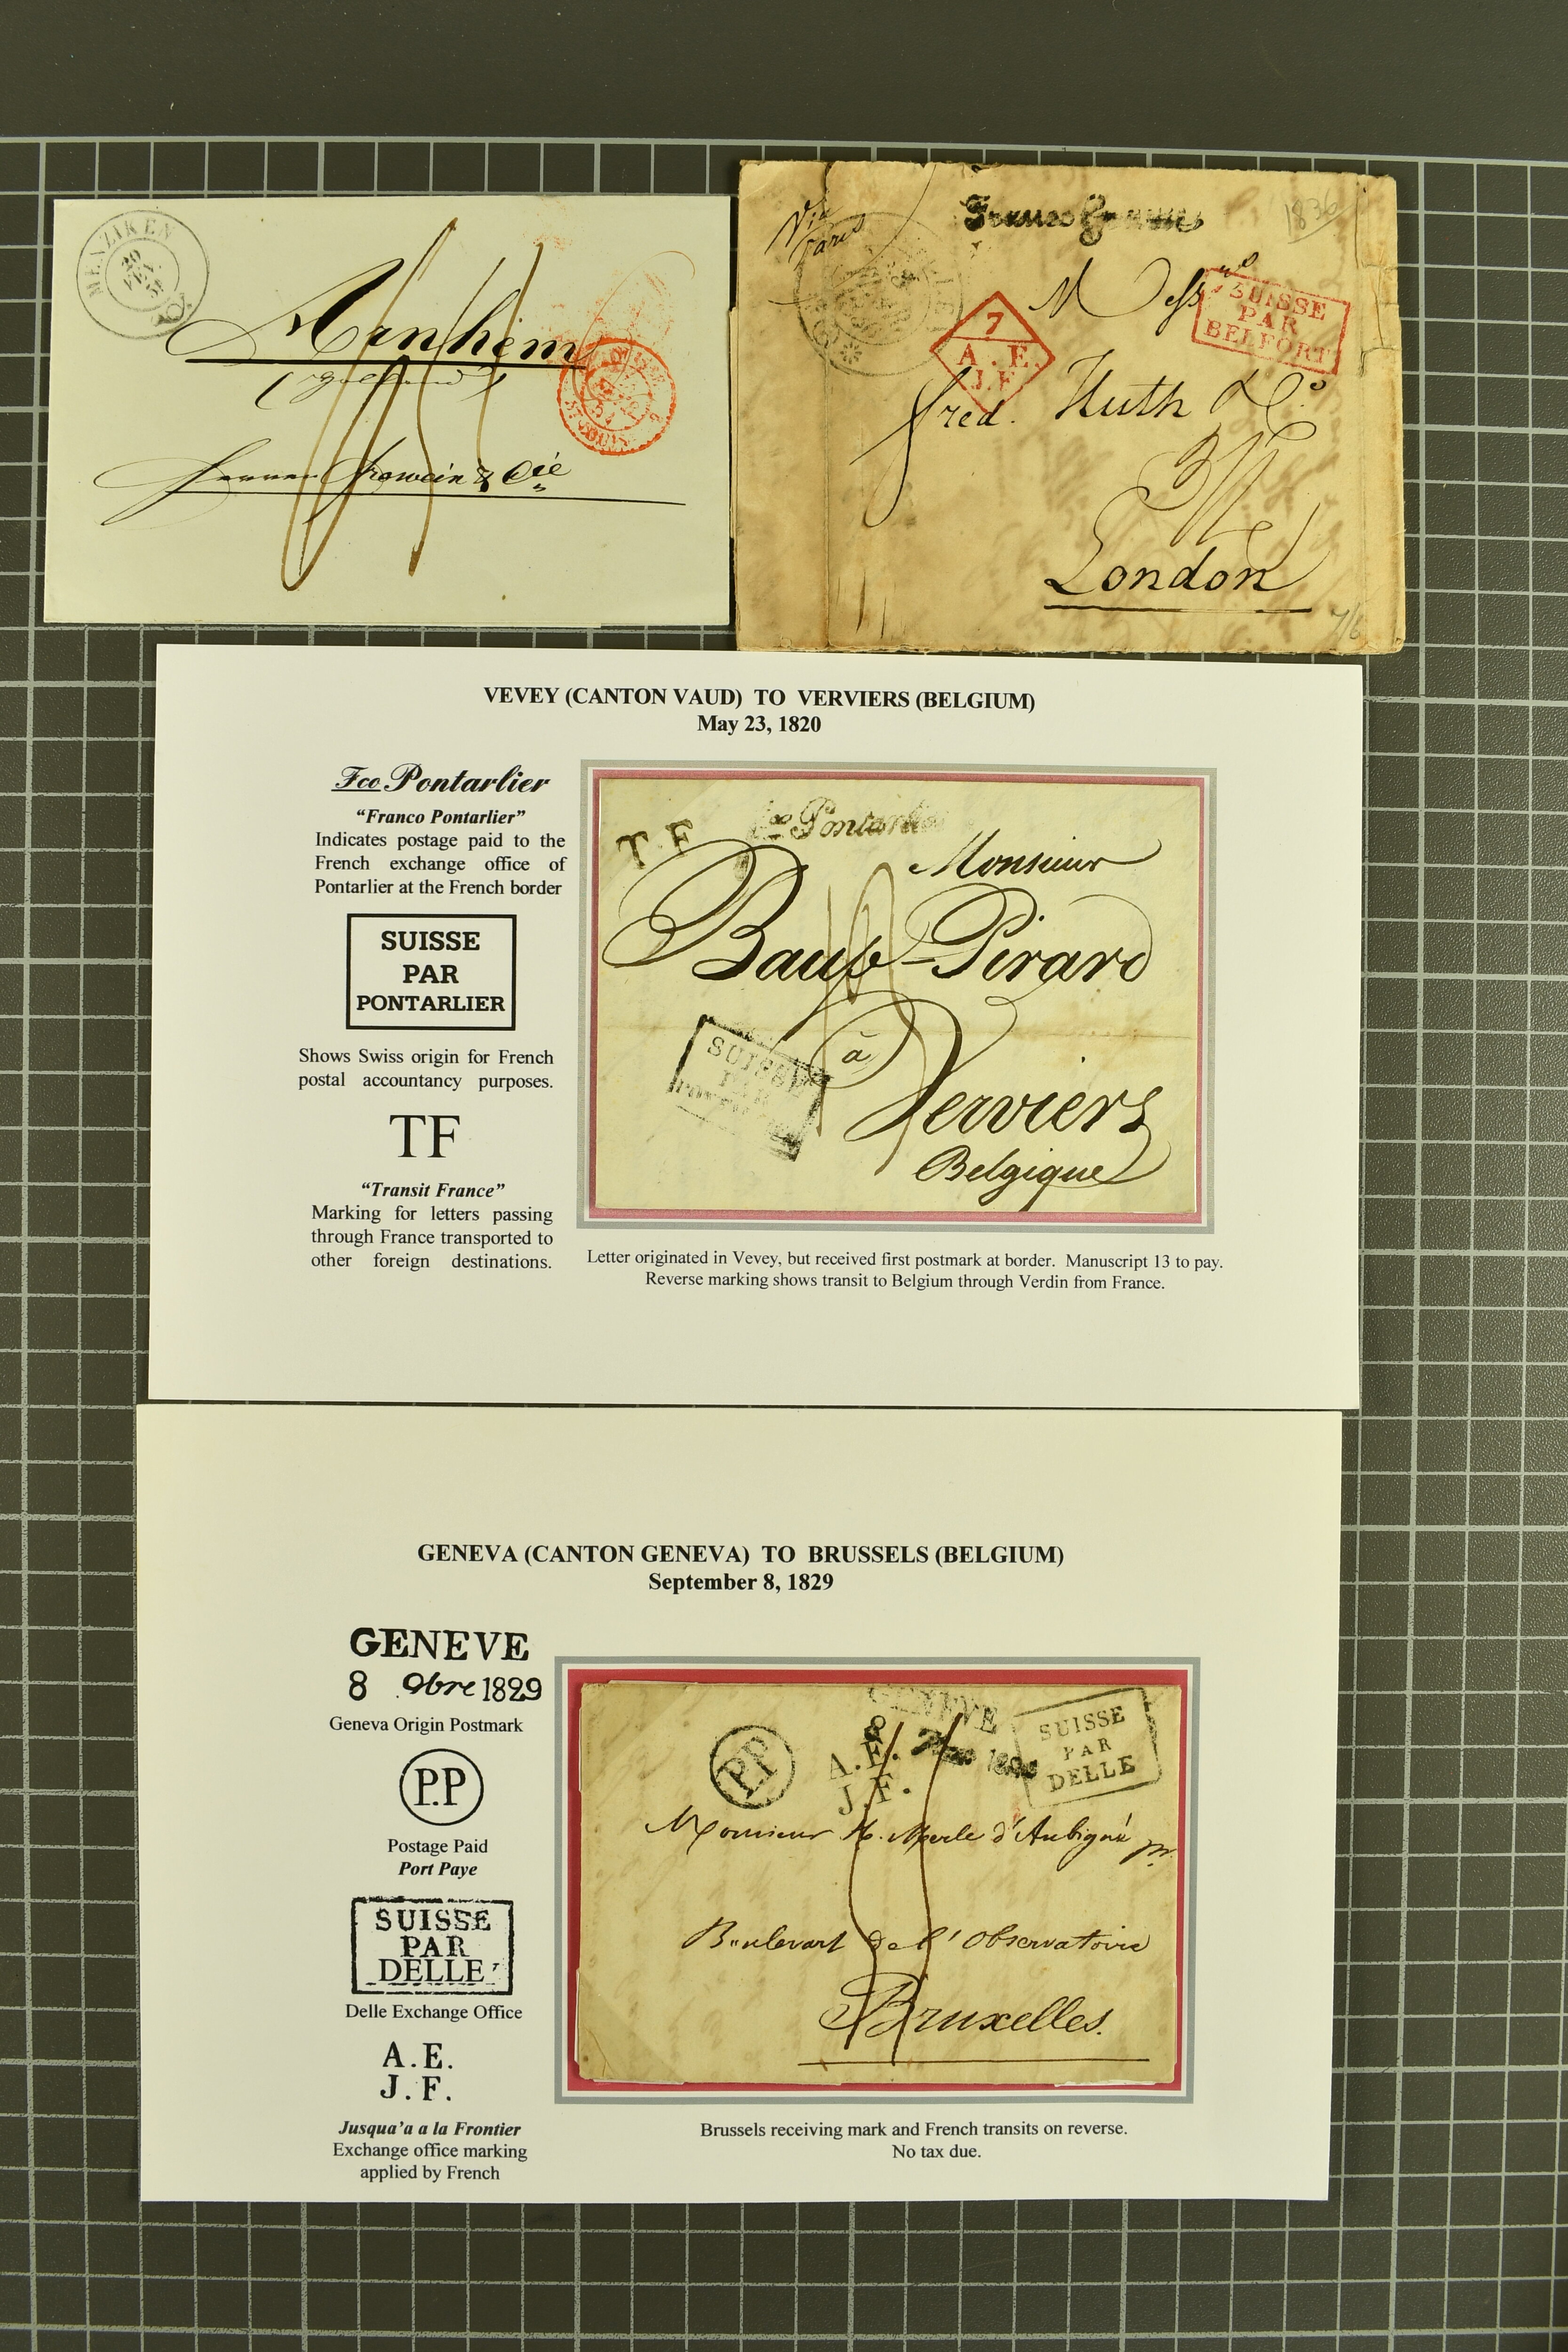 MENZIKEN
Arnhem
& Cie
Via
Paris
Franco
1836
7
A. E.
J. F.
SUISSE
PAR
BELFORT
fred. Huth & Co
London
7/6
VEVEY (CANTON VAUD) TO VERVIERS (BELGIUM)
May 23, 1820
Fco Pontarlier
“Franco Pontarlier”
Indicates postage paid to the
French exchange office of
Pontarlier at the French border
SUISSE
PAR
PONTARLIER
Shows Swiss origin for French
postal accountancy purposes.
TF
“Transit France”
Marking for letters passing
through France transported to
other foreign destinations.
T. F
Fco Pontarlier
Monsieur
Baub-Pirard
à
Verviers
Belgique
SUISSE
PAR
Letter originated in Vevey, but received first postmark at border. Manuscript 13 to pay.
Reverse marking shows transit to Belgium through Verdin from France.
GENEVA (CANTON GENEVA) TO BRUSSELS (BELGIUM)
September 8, 1829
GENEVE
8 9bre 1829
Geneva Origin Postmark
P.P
Postage Paid
Port Paye
SUISSE
PAR
DELLE
Delle Exchange Office
A.E.
J.F.
Jusqua’a a la Frontier
Exchange office marking
applied by French
P.P
GENEVE
8
A.E.
J.F.
SUISSE
PAR
DELLE
Monsieur H. Merle d'Aubigné
Boulevart de l'Observatoire
Bruxelles.
Brussels receiving mark and French transits on reverse.
No tax due.